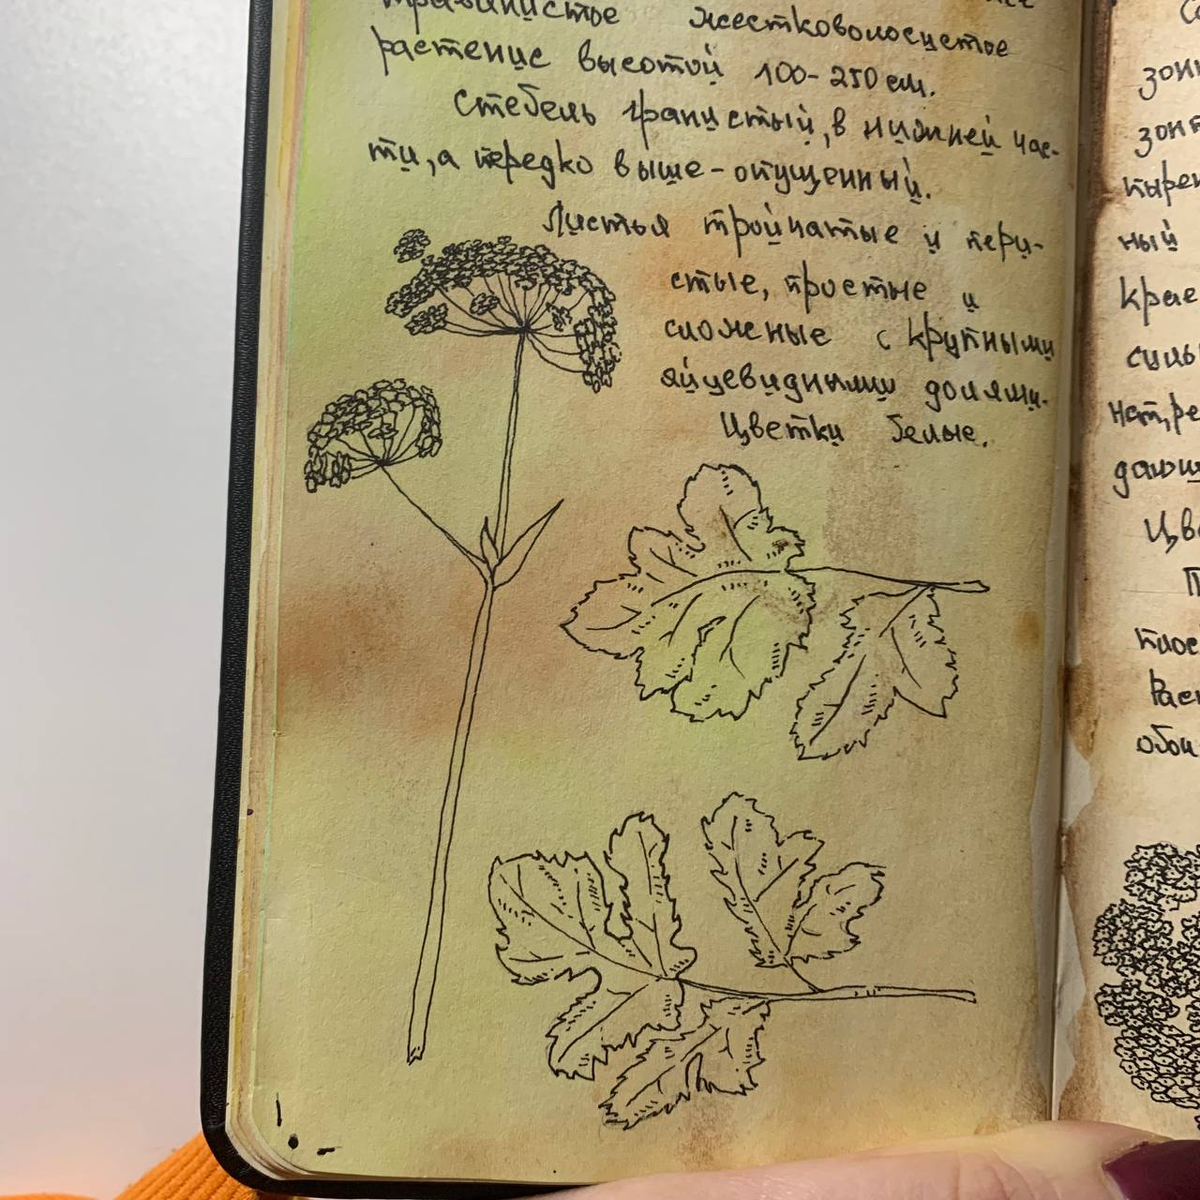 травянистое жестковолосистое
растение высотой 100-250 см.
Стебель гранистый, в нижней час-
ти, а нередко выше-опущенный.
Листья тройчатые и пери-
стые, простые и
сложеные с крупными
яйцевидными долями.
Цветки белые.
зон
зон
тырех
ный
крае
силь
нат, ре
дающ
Цв
П
плос
Рас
обои